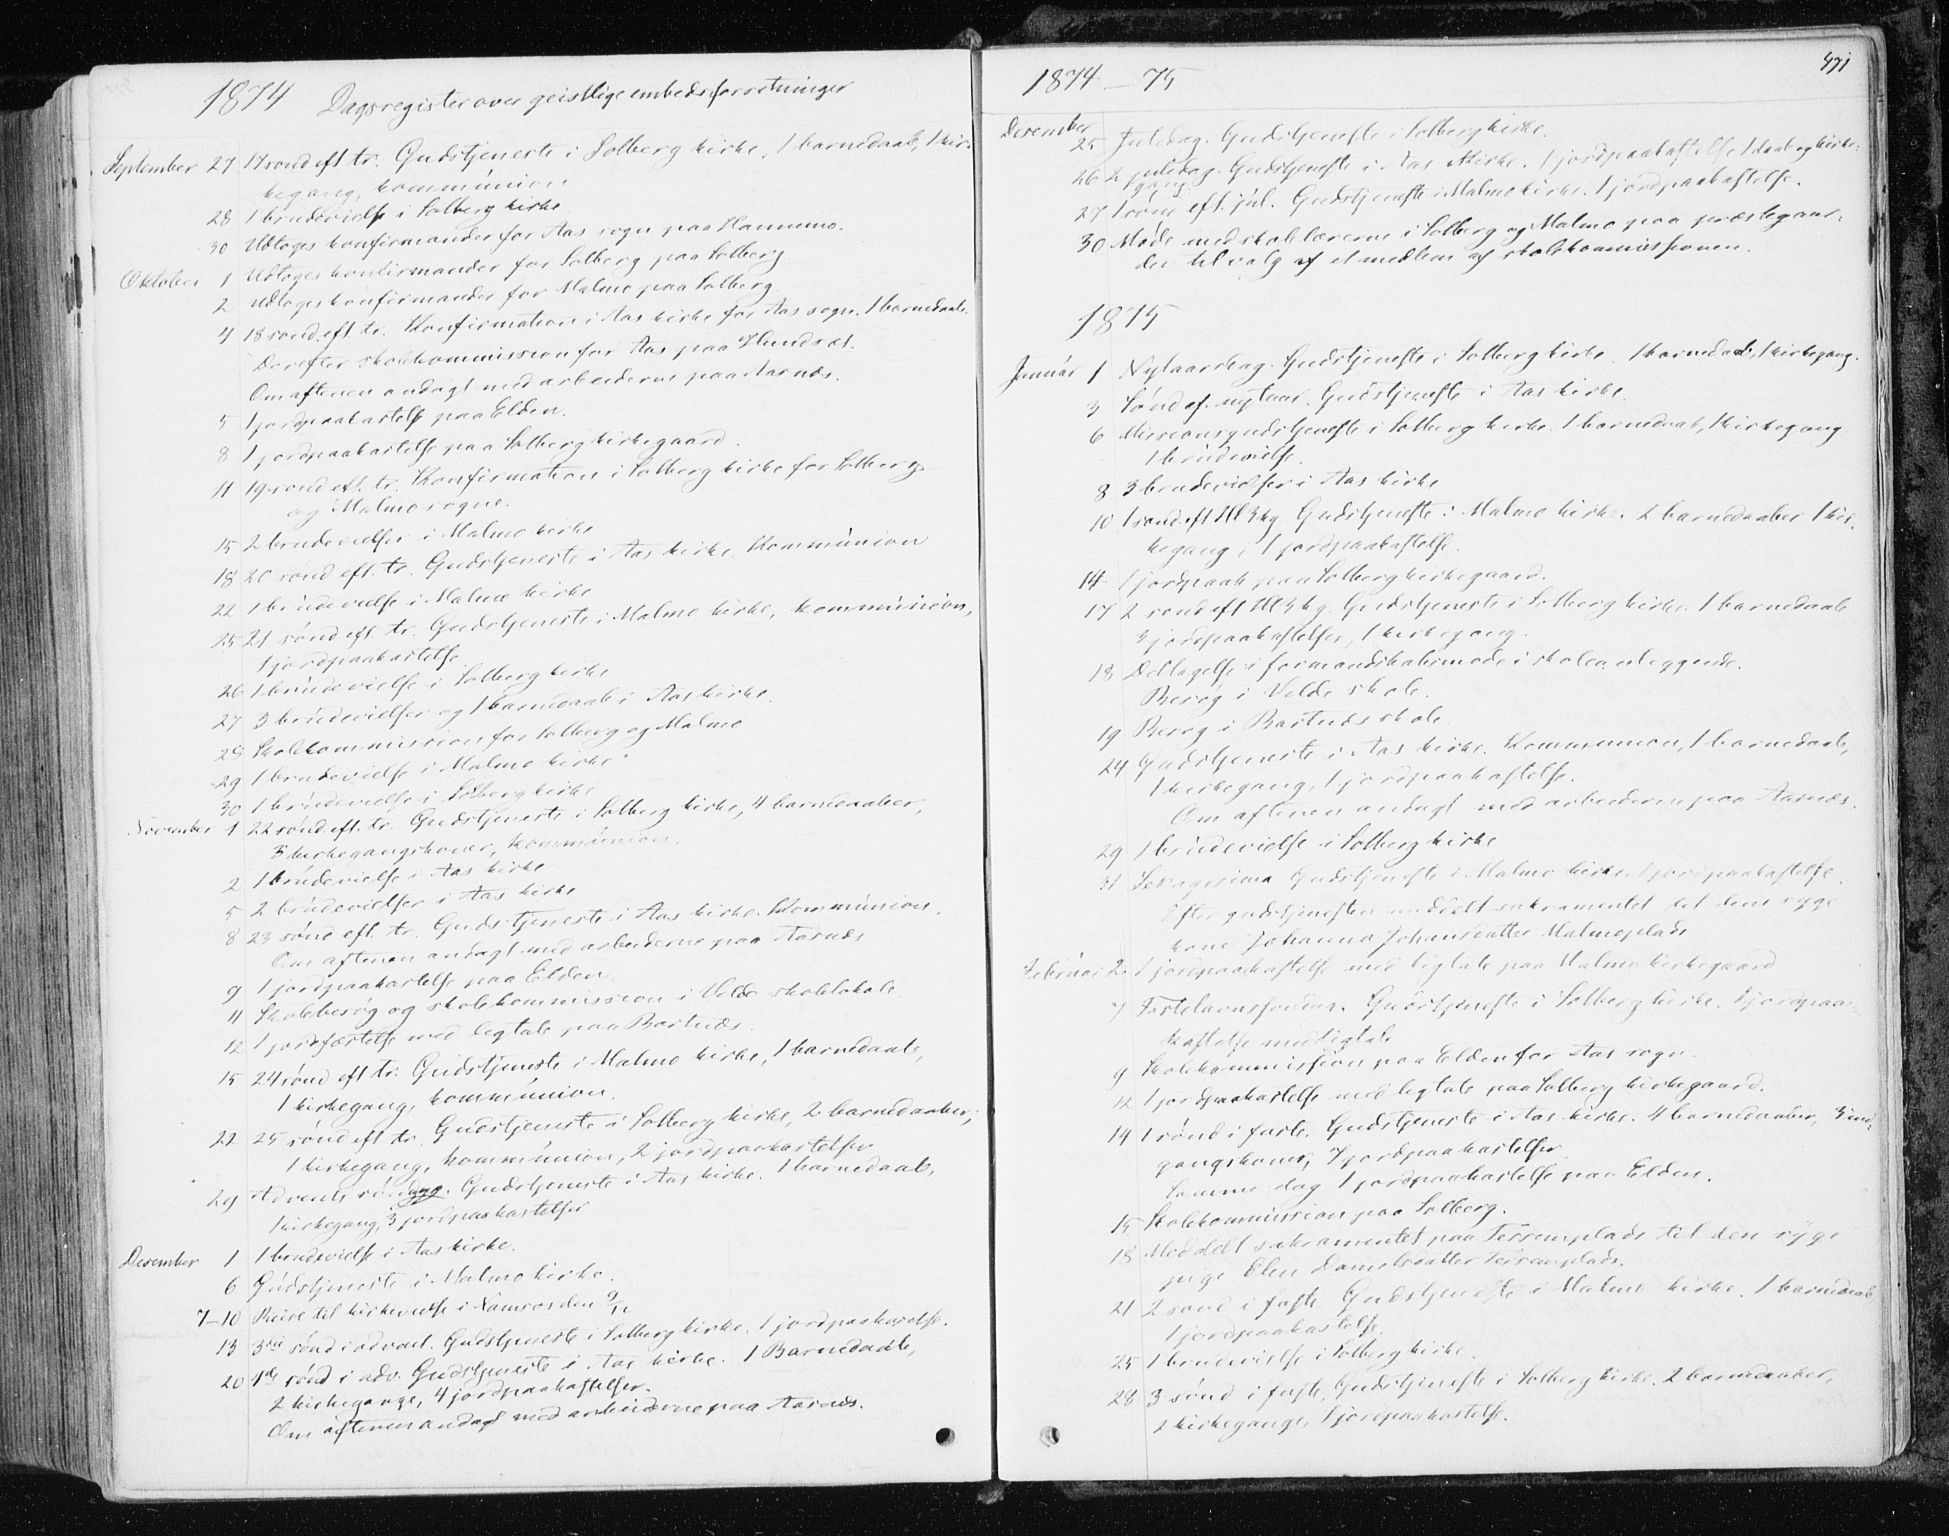 1874 Dagsregister over geistlige embedsforretninger
September 27 17 sønd eft. tr. Gudstjeneste i Solberg kirke, 1 barnedaab, 1 kir-
kegang, kommúnion.
28 1 brúdevielse i Solberg kirke
30 Udtoges konfirmander for Aas sogn paa Hannemo.
Oktober 1 Udtoges konfirmander for Solberg paa Solberg
2 Udtoges konfirmander for Malmo paa Solberg
4 18 sønd. eft. tr. Konfirmation i Aas kirke for Aas sogn. 1 barnedaab.
Derefter skolekommission for Aas paa Hundset.
Om aftenen andagt med arbeiderne paa Aarnæs.
5 1 jordpaakastelse paa Elden.
8 1 jordpaakastelse paa Solberg kirkegaard.
11 19 sønd eft. tr. Konfirmation i Solberg kirke for Solberg
og Malmo sogne.
15 2 brúdevielser i Malmo kirke
18 20 sønd eft. tr. Gudstjeneste i Aas kirke. Kommúnion
22 1 brúdevielse i Malmo kirke
25 21 sønd eft. tr. Gudstjeneste i Malmo kirke, kommúnion,
1 jordpaakastelse
26 1 brúdevielse i Solberg kirke
27 3 brúdevielser og 1 barnedaab i Aas kirke.
28 Skolekommission for Solberg og Malmo
29 1 brúdevielse i Malmo kirke
30 1 brúdevielse i Solberg kirke
November 1 22 sønd. eft. tr. Gudstjeneste i Solberg kirke, 4 barnedaaber,
3 kirkegangskoner, kommúnion.
2 1 brúdevielse i Aas kirke
5 2 brúdevielser i Aas kirke
8 23 sønd eft. tr. Gudstjeneste i Aas kirke. Kommúnion.
Om aftenen andagt med arbeiderne paa Aarnæs
9 1 jordpaakastelse paa Elden
11 Skolebesøg og skolekommission i Velde skolelokale
12 1 jordfæstelse med ligtale paa Bartnæs.
15 24 sønd eft tr. Gudstjeneste i Malmo kirke, 1 barnedaab,
1 kirkegang, kommúnion.
22 25 sønd eft tr. Gudstjeneste i Solberg kirke, 2 barnedaaber,
1 kirkegang, kommúnion, 2 jordpaakastelser
29 Advents søndag. Gudstjeneste i Aas kirke. 1 barnedaab,
1 kirkegang, 3 jordpaakastelser
Desember 1 1 brudevielse i Aas kirke.
6 Gúdstjeneste i Malmo kirke.
7–10 Reise til kirkevielse i Namsos den 9/12
13 3die sønd i advent. Gúdstjeneste i Solberg kirke. 1 jordpaakastelse.
20 4de sønd i adv. Gudstjeneste i Aas kirke. 1 Barnedaab,
2 kirkegange, 4 jordpaakastelser.
Om aftenen andagt med arbeiderne paa Aarnæs.
1874 – 75
471
Desember
25 Juledag. Gudstjeneste i Solberg kirke.
26 2 juledag. Gudstjeneste i Aas kirke. 1 jordpaakastelse 1 daab og kirke-
gang.
27 1 sønd eft. júl. Gudstjeneste i Malmo kirke. 1 jordpaakastelse.
30 Møde med skolelærerne i Solberg og Malmo paa præstegaar-
den til valg af et medlem af skolekommissionen.
1875
Janúar 1 Nytaarsdag. Gudstjeneste i Solberg kirke. 1 barnedaab, 1 kirkegang.
3 Sønd ef. nytaar. Gudstjeneste i Aas kirke.
6 Missionsgudstjeneste i Solberg kirke. 1 barnedaab, 1 kirkegang
1 brúdevielse.
8 3 brudevielser i Aas kirke
10 1 sønd eft Hl 3 kg. Gudstjeneste i Malmo kirke. 2 barnedaaber 1 kir-
kegang, 1 jordpaakastelse.
14 1 jordpaak. paa Solberg kirkegaard.
17 2 sønd eft Hl 3 kg. Gudstjeneste i Solberg kirke. 1 barnedaab
3 jordpaakastelser, 1 kirkegang.
18 Deltagelse i formandskabsmøde i skoleanliggende.
Besøg i Velde skole.
19 Besøg i Bartnæs skole.
24 Gudstjeneste i Aas kirke. Kommunion, 1 barnedaab,
1 kirkegang, 1 jordpaakastelse.
Om aftenen andagt med arbeiderne paa Aarnæs.
29 1 brúdevielse i Solberg kirke
31 Seksagesima. Gudstjeneste i Malmo kirke. 1 jordpaakastelse.
Efter gudstjenesten meddelt sakramentet til den syge
kone Johanna Johansdatter Malmoplads
Februar 2 1 jordpaakastelse med ligtale paa Malmo kirkegaard
7 Fastelavnssøndag. Gudstjeneste i Solberg kirke. 1 jordpaa-
kastelse med ligtale
9 Skolekommission paa Elden for Aas sogn.
12 1 jordpaakastelse med ligtale paa Solberg kirkegaard.
14 1 sønd i faste. Gudstjeneste i Aas kirke. 4 barnedaaber, 3 ind-
gangskoner, 7 jordpaakastelser
Samme dag 1 jordpaakastelse paa Elden.
15 Skolekommission paa Solberg.
18 Meddelt sakramentet paa Terremplads til den syge
pige Elen Danielsdatter Terremplads.
21 2 sønd i faste. Gudstjeneste i Malmo kirke. 1 barnedaab
1 jordpaakastelse.
25 1 brudevielse i Solberg kirke.
28 3 sønd i faste. Gudstjeneste i Solberg kirke. 2 barnedaaber,
2 kirkegange, 1 jordpaakastelse.